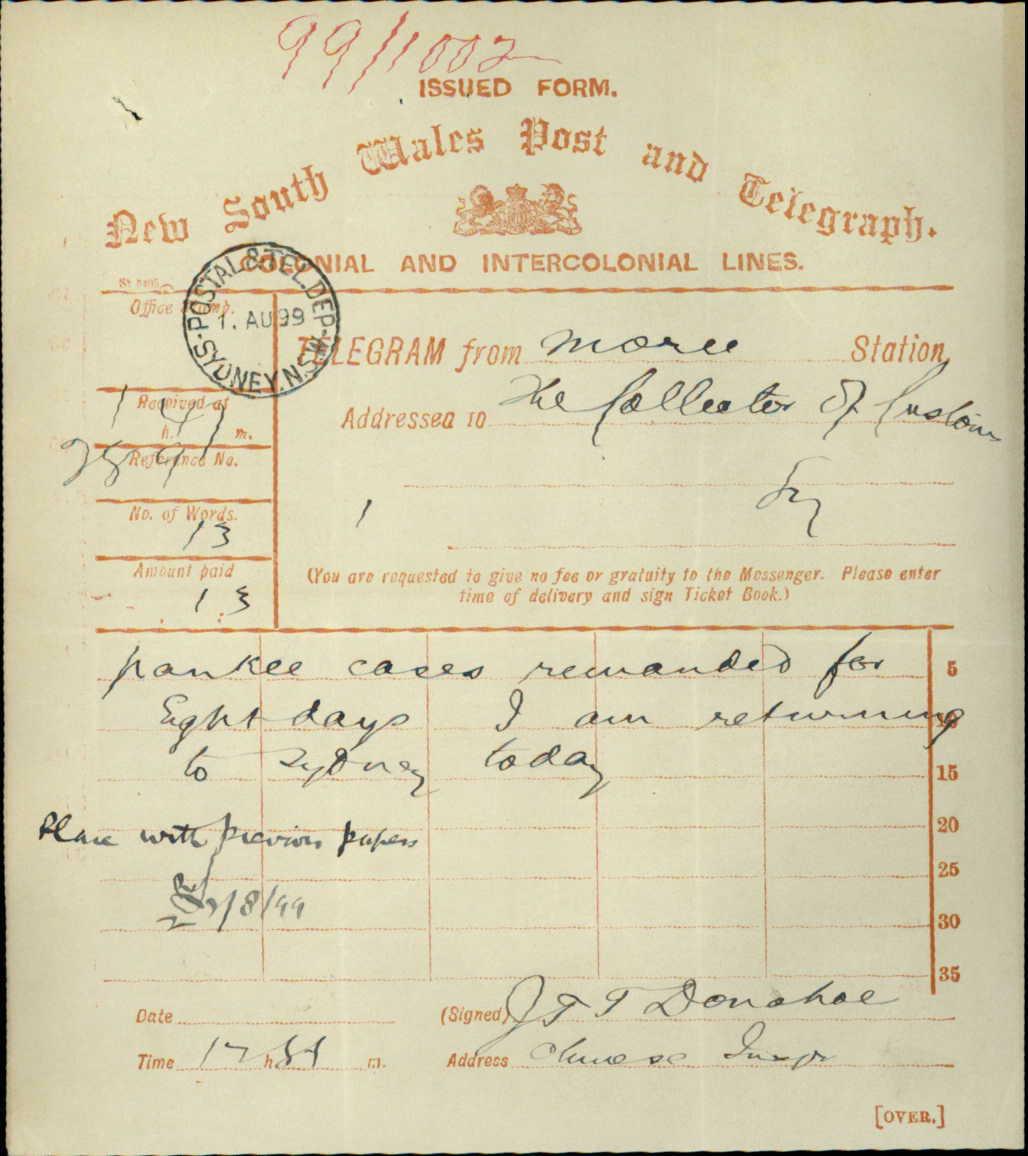 99/1002
ISSUED FORM.
New South Wales Post and Telegraph.
COLONIAL AND INTERCOLONIAL LINES.
Office Stamp.
POSTAL & TEL. DEP. SYDNEY. N.S.W.
1. AU 99
TELEGRAM from Moree Station
Addressed to The Collector of Customs
Sy
1
Received at
h. m.
Reference No.
No. of Words.
13
Amount paid
1 3
(You are requested to give no fee or gratuity to the Messenger. Please enter
time of delivery and sign Ticket Book.)
pankee cases remanded for 5
Eght days I am returning
to Sydney today 15
20
Place with previous papers
25
2/8/99
30
35
Date (Signed) J T T Donohoe
Time 12 h m. Address Chinese Inspr
[OVER.]